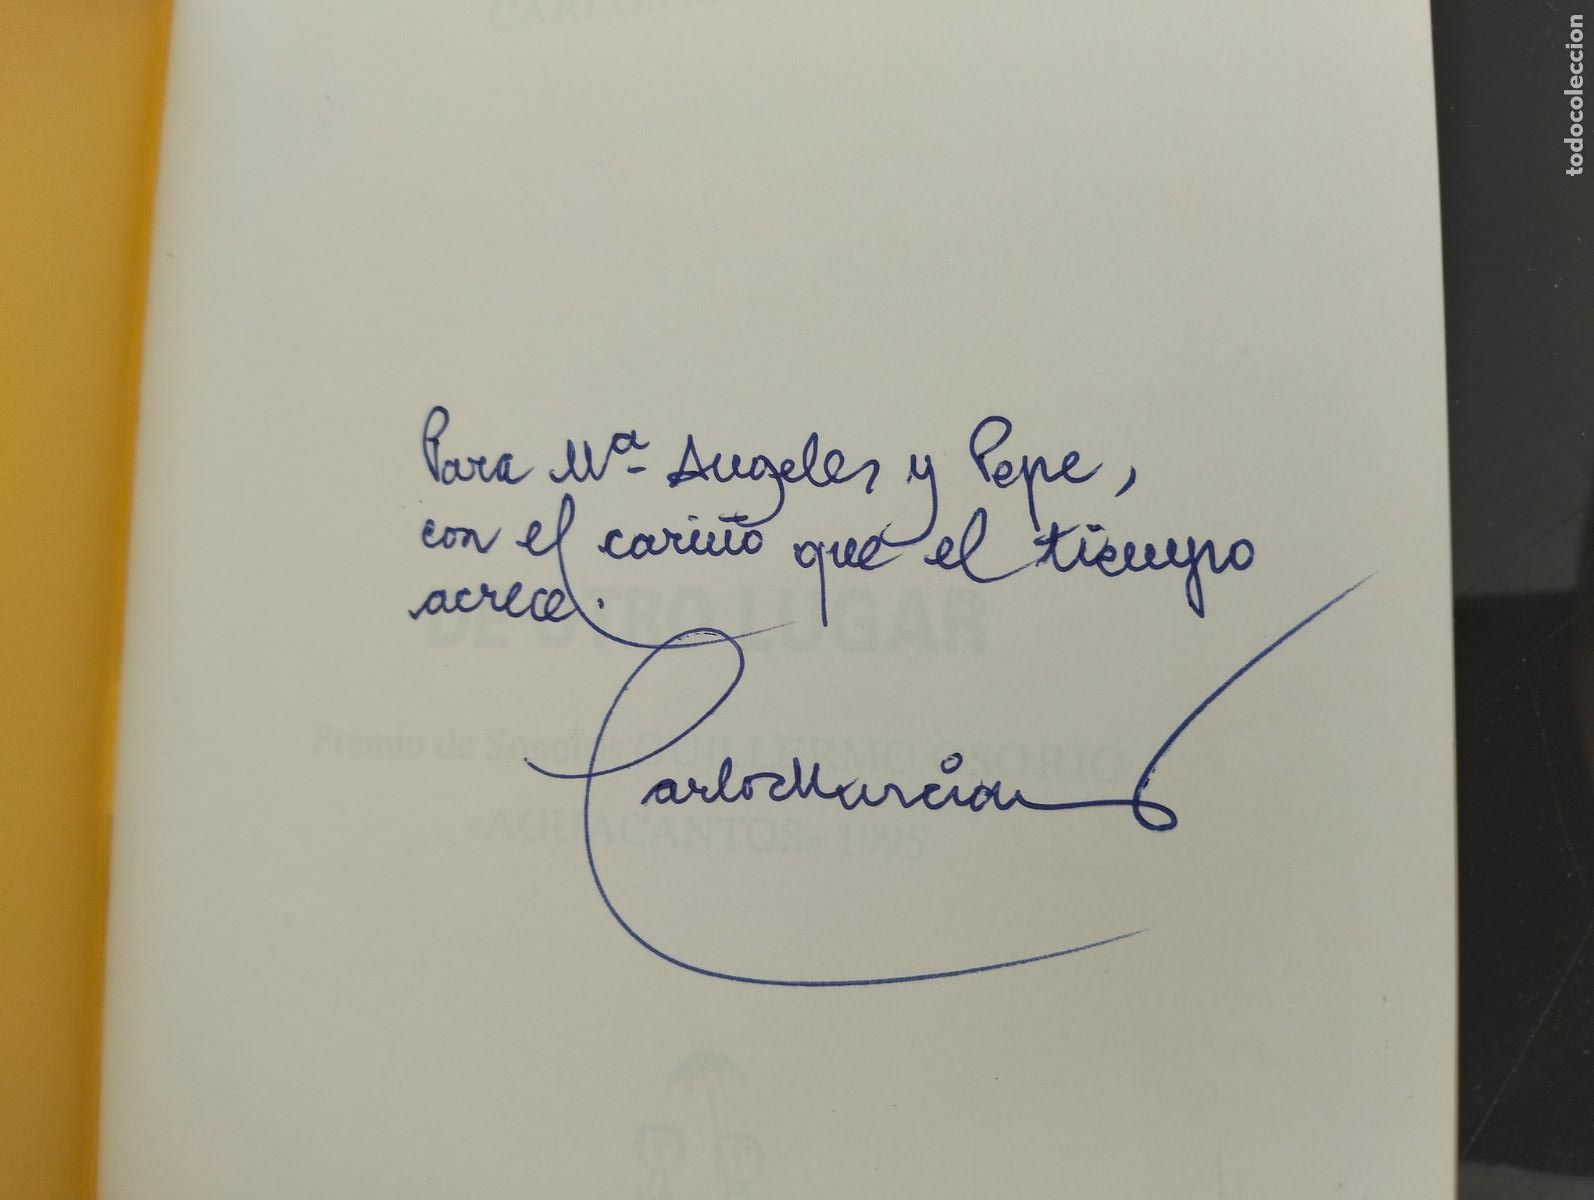 Para Mª Angeles y Pepe,
con el cariño que el tiempo
acrece.
Carlos Murciano
DE OTRO LUGAR
Premio de Sonetos GUILLERMO OSORIO
AGUACANTOS» 1995
todocoleccion